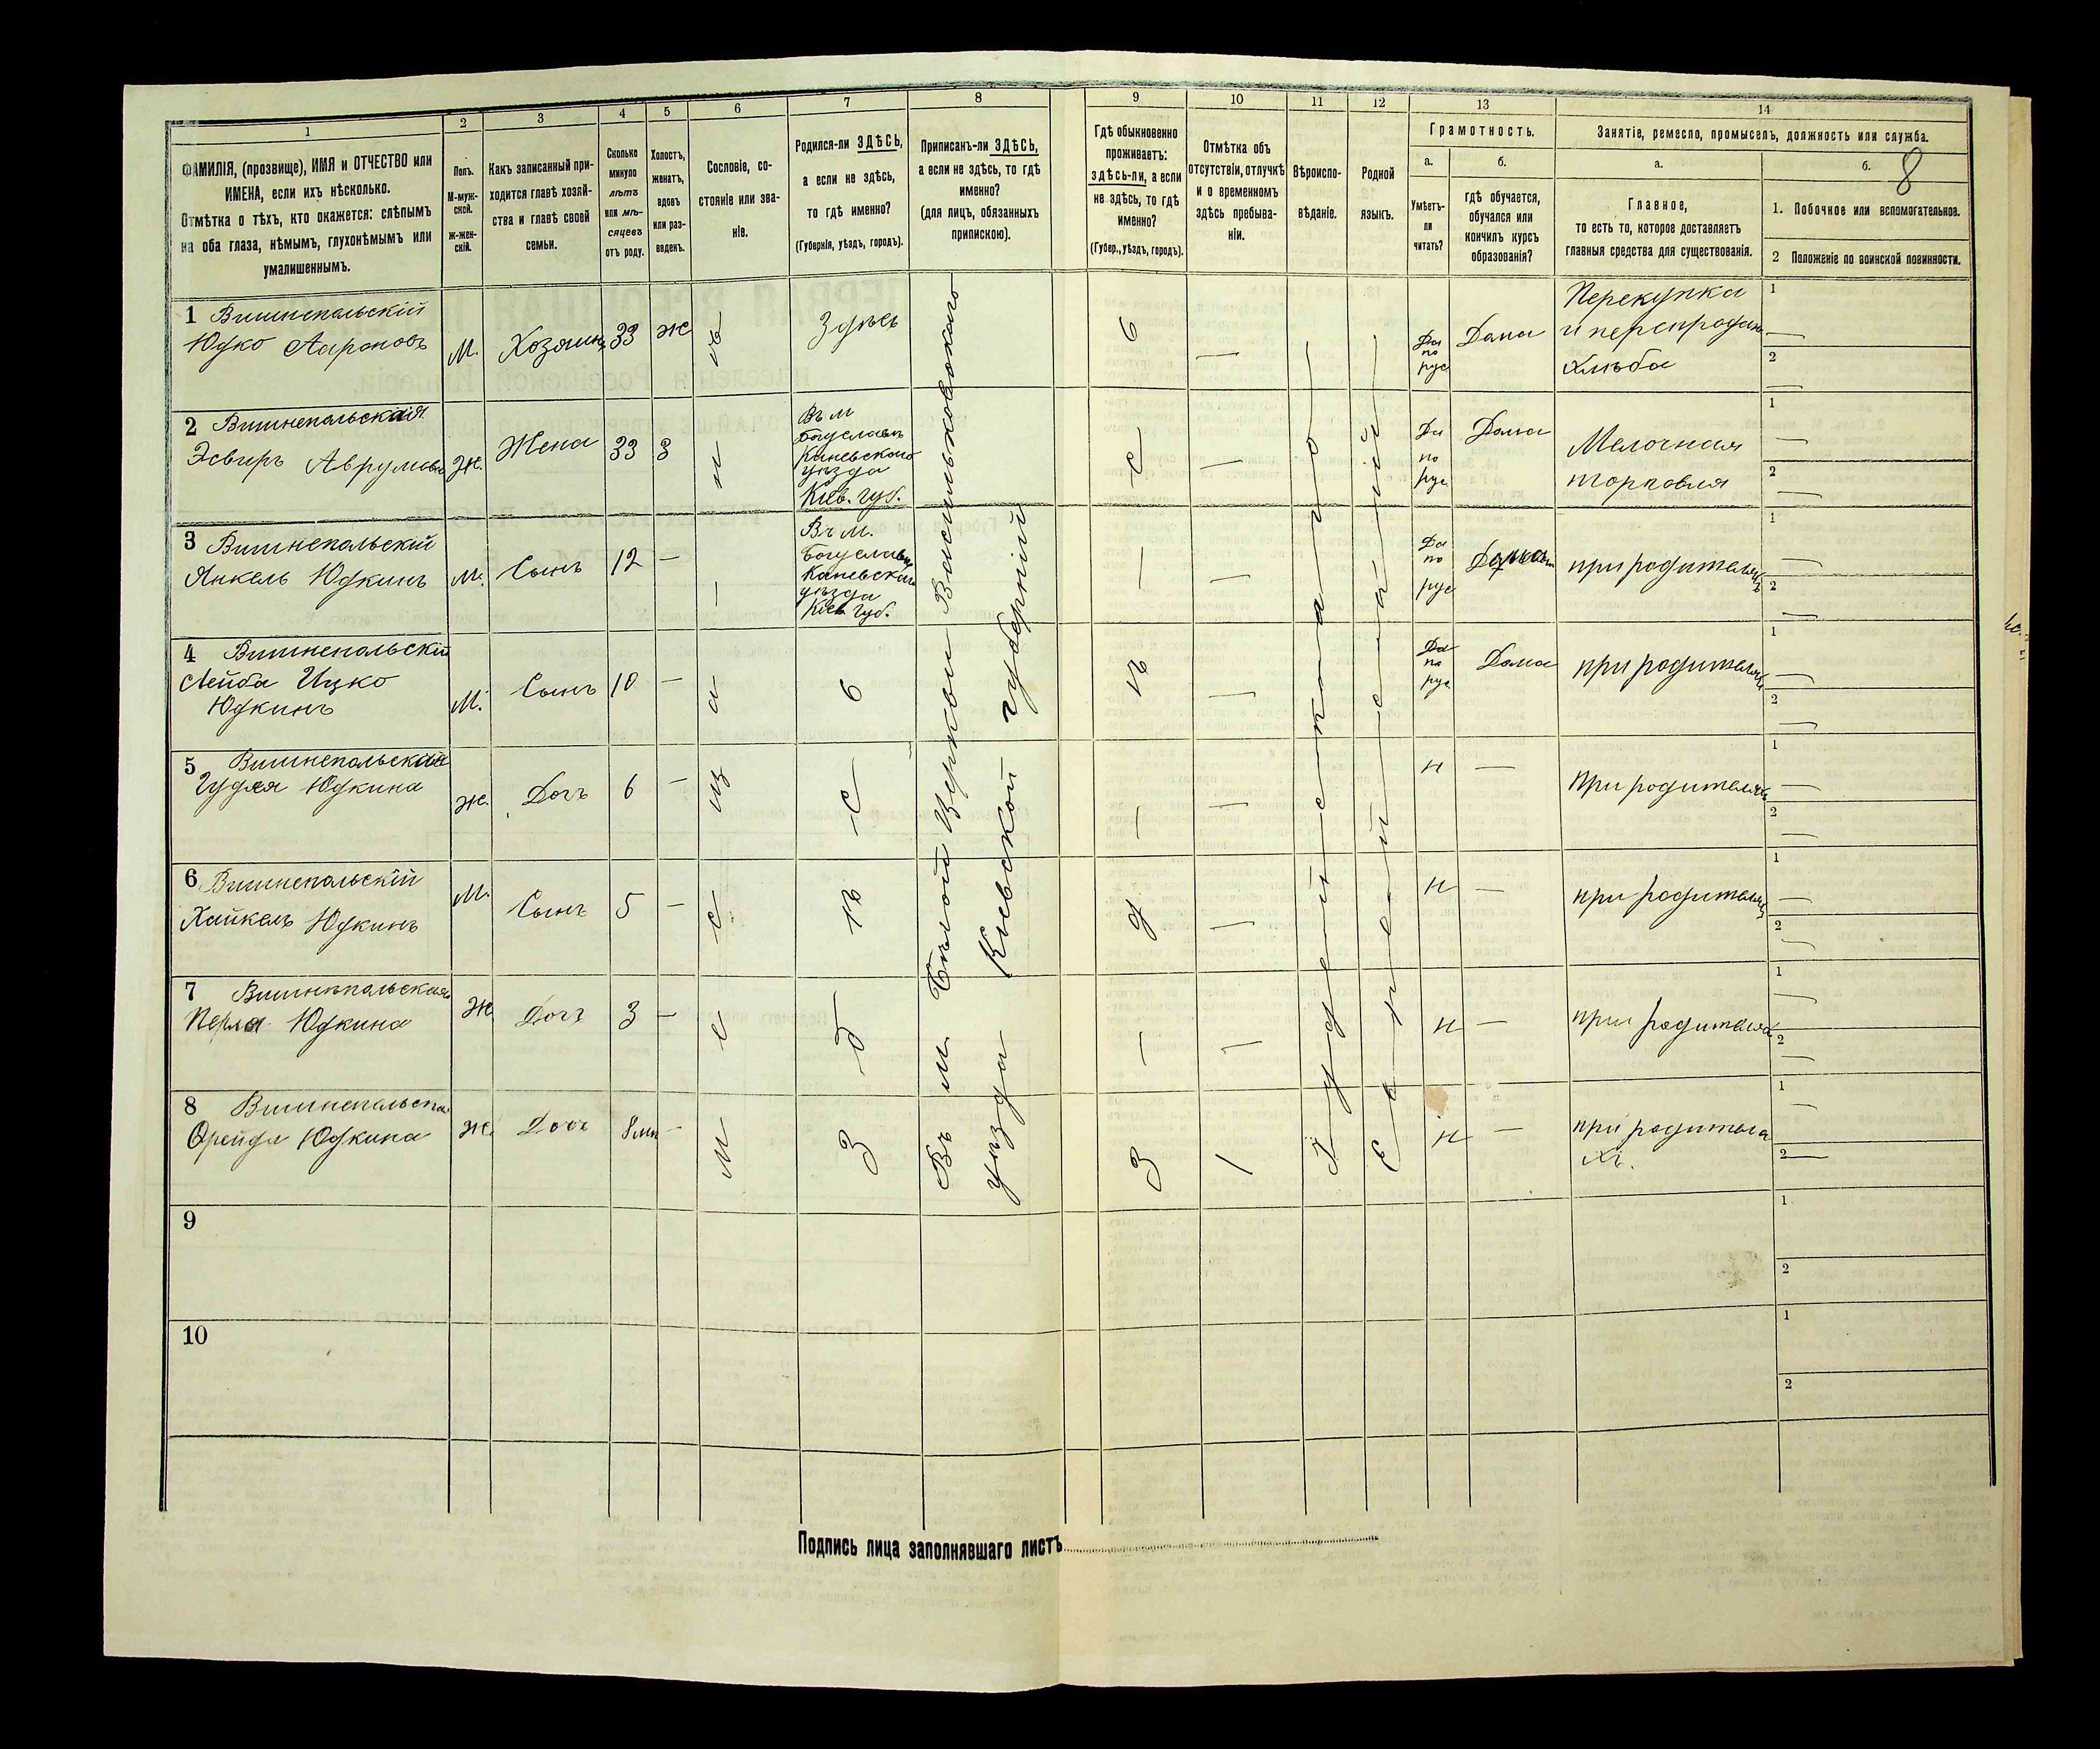 1 2 3 4 5 6 7 8 9 10 11 12 13 14
ФАМИЛІЯ, (прозвище), ИМЯ и ОТЧЕСТВО или
ИМЕНА, если ихъ нѣсколько.
Отмѣтка о тѣхъ, кто окажется: слѣпымъ
на оба глаза, нѣмымъ, глухонѣмымъ или
умалишеннымъ.
Полъ.
М-муж-
ской.
Ж-жен-
скій.
Какъ записанный при-
ходится главѣ хозяй-
ства и главѣ своей
семьи.
Сколько
минуло
лѣтъ
или мѣ-
сяцевъ
отъ роду.
Холостъ,
женатъ,
вдовъ
или раз-
веденъ.
Сословіе, со-
стояніе или зва-
ніе.
Родился-ли ЗДѢСЬ,
а если не здѣсь,
то гдѣ именно?
(Губернія, уѣздъ, городъ).
Приписанъ-ли ЗДѢСЬ,
а если не здѣсь, то гдѣ
именно?
(для лицъ, обязанныхъ
припискою).
Гдѣ обыкновенно
проживаетъ:
здѣсь-ли, а если
не здѣсь, то гдѣ
именно?
(Губер., уѣздъ, городъ).
Отмѣтка объ
отсутствіи, отлучкѣ
и о временномъ
здѣсь пребыва-
ніи.
Вѣроиспо-
вѣданіе.
Родной
языкъ.
Грамотность.
а.
Умѣетъ-
ли
читать?
б.
гдѣ обучается,
обучался или
кончилъ курсъ
образованія?
Занятіе, ремесло, промыселъ, должность или служба.
а.
Главное,
то есть то, которое доставляетъ
главныя средства для существованія.
б.
8
1. Побочное или вспомогательное.
2 Положеніе по воинской повинности.
1 Вишнепольскій
Юдко Аароновъ
М.
Хозяинъ
33
ж
Здѣсь
Да
по
рус
Дома
Перекупка
и перепродажа
хлѣба
1
2
2 Вишнепольская
Эсвиръ Аврумова
Ж.
Жена
33
З
Въ м
Богуславъ
Каневскаго
уѣзда
Кіев. губ.
Да
по
рус
Дома
Мелочная
торговля
1
2
3 Вишнепольскій
Янкель Юдкинъ
М.
Сынъ
12
—
Въ м.
Богуславъ
Каневскаго
уѣзда
Кіев. губ.
Да
по
рус
при родителяхъ
1
2
4 Вишнепольскій
Лейба Ицко
Юдкинъ
М.
Сынъ
10
—
Да
по
рус
Дома
при родителяхъ
1
2
5 Вишнепольская
Гудля Юдкина
Ж.
Дочъ
6
—
н
—
При родителяхъ
1
2
6 Вишнепольскій
Хайкель Юдкинъ
М.
Сынъ
5
—
н
—
при родителяхъ
1
2
7 Вишнепольская
Перля Юдкина
Ж.
Дочъ
3
—
н
—
при родителях
1
2
8 Вишнепольская
Фрейда Юдкина
Ж.
Дочъ
8 мѣс
—
н
—
при родителя
хъ.
1
2
изъ мѣщанъ
здѣсь
Въ м. Бѣлой Церкви Васильковскаго
уѣзда Кіевской губерніи
здѣсь
Іудейскаго
Еврейскій
9
1
2
10
1
2
Подпись лица заполнявшаго листъ